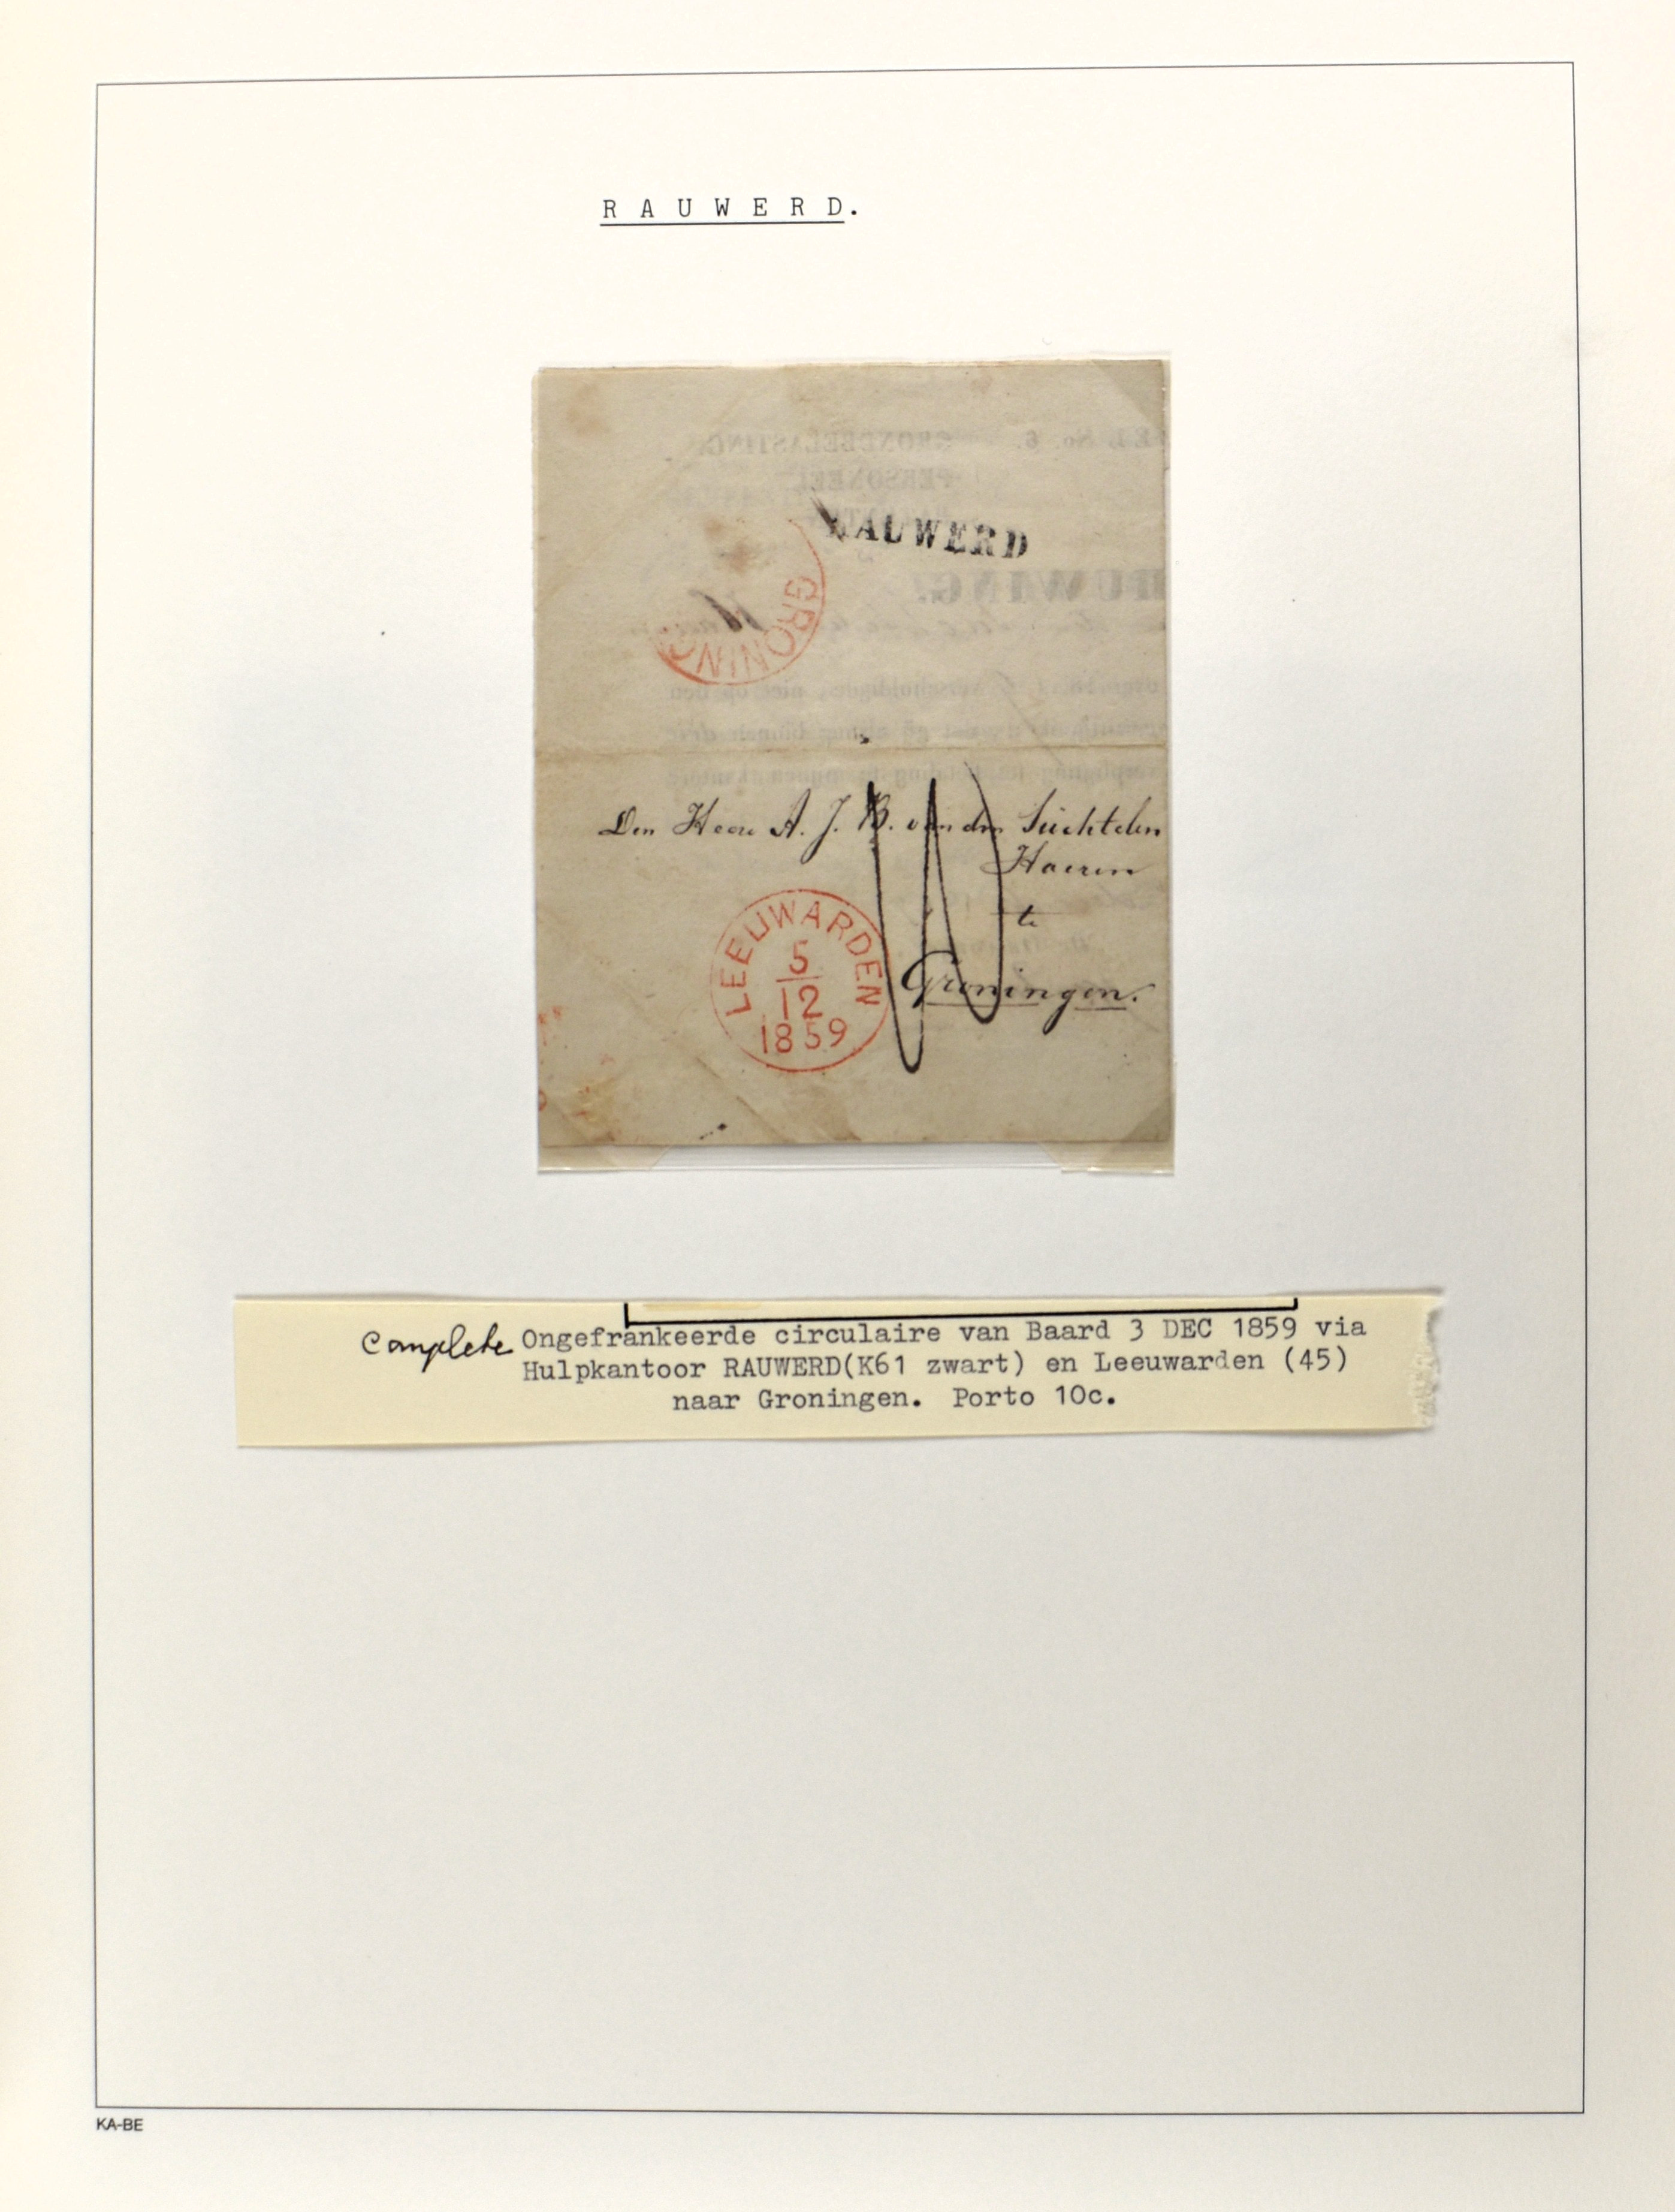 R A U W E R D.
RAUWERD
GRONING
Den Heere A. J. B. van den Suchtelen
Haeren
te
Groningen.
LEEUWARDEN
5
12
1859
complete Ongefrankeerde circulaire van Baard 3 DEC 1859 via
Hulpkantoor RAUWERD(K61 zwart) en Leeuwarden (45)
naar Groningen. Porto 10c.
KA-BE